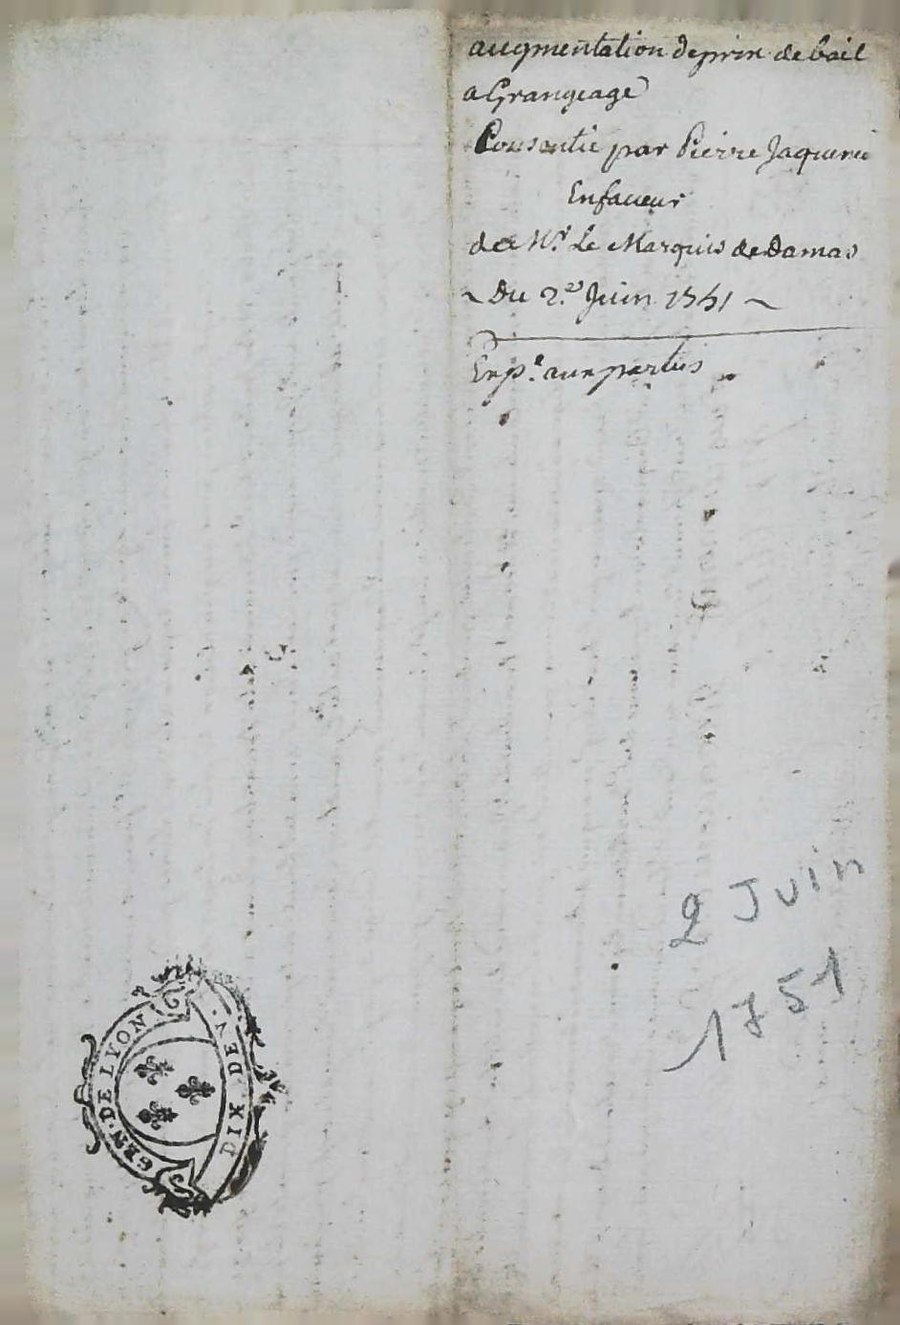 augmentation de prix de bail
a Grangeage
Consentie par Pierre Jaquerie
Enfaveur
de Mr. Le Marquis de Damas
~ Du 2.e Juin 1751 ~
Exp.e aux parties
2 Juin
1751
GEN. DE LYON